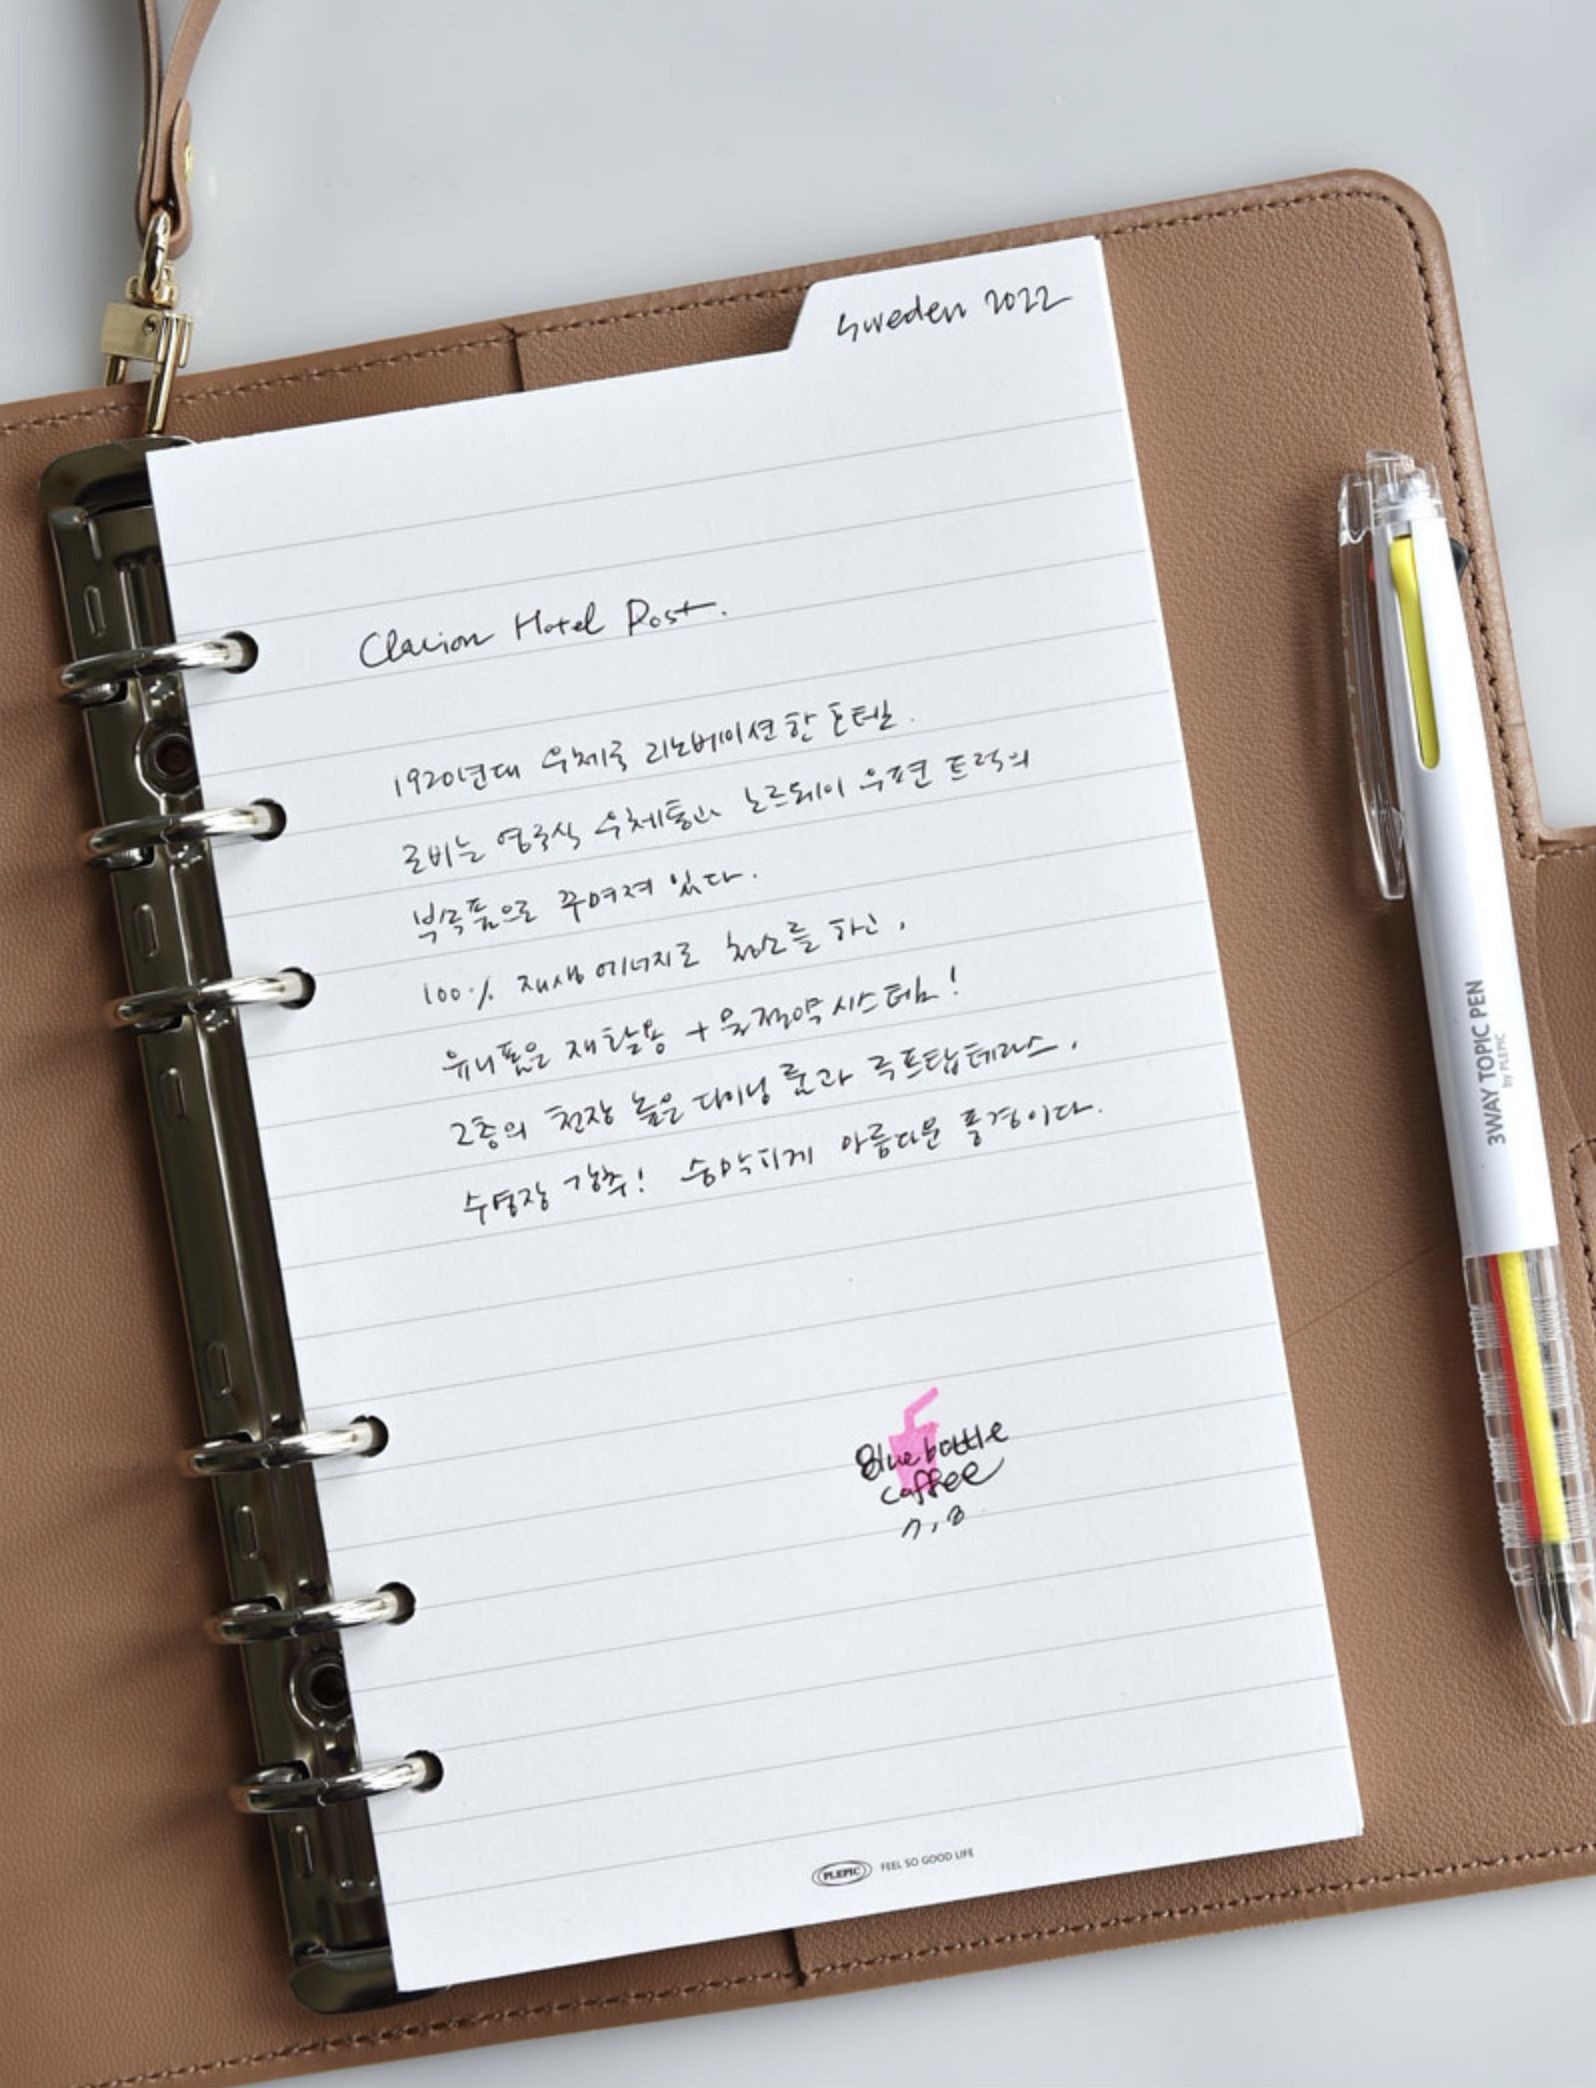 Sweden 2022
Clarion Hotel Post.
1920년대 우체국 리노베이션한 호텔.
로비는 영국식 우체통과 노르웨이 우편 트럭의
부속품으로 꾸며져 있다.
100% 재생에너지로 청소를 하고,
유니폼은 재활용 + 물절약시스템!
2층의 천장 높은 다이닝 룸과 루프탑테라스,
수영장 강추! 숨막히게 아름다운 풍경이다.
Blue bottle
coffee
PLEPIC FEEL SO GOOD LIFE
3WAY TOPIC PEN
by PLEPIC